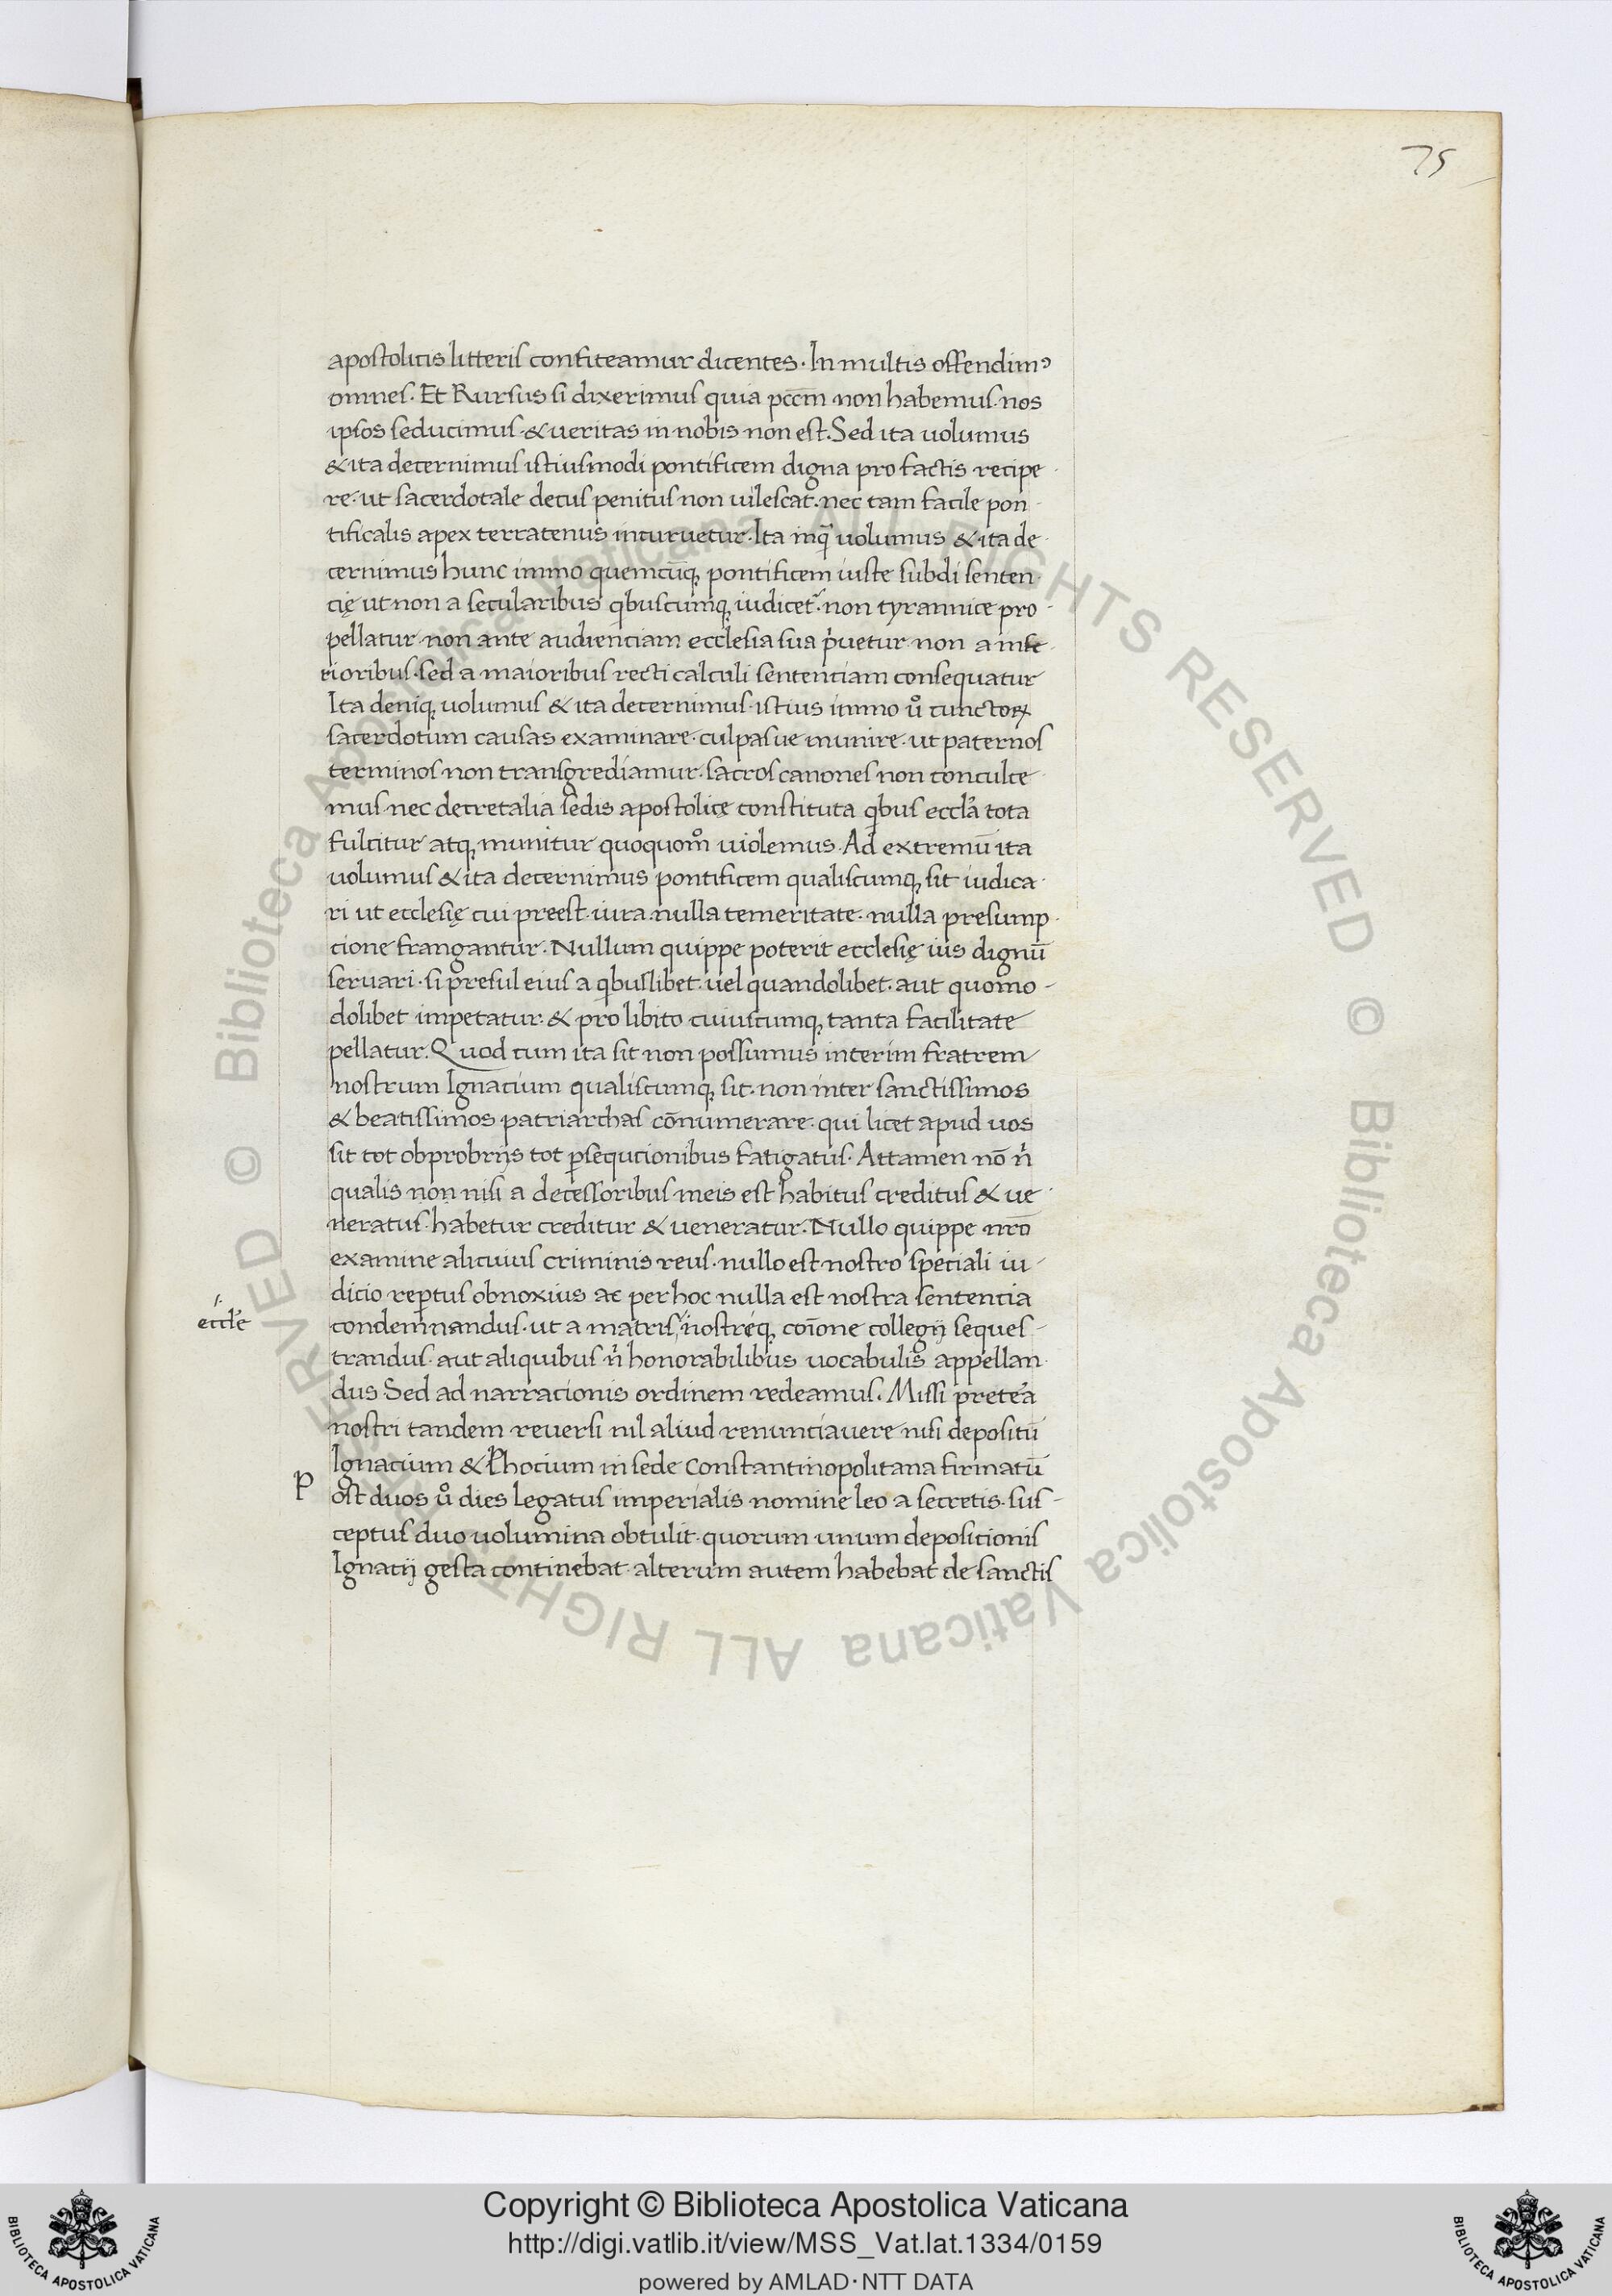 75
apostolicis litteris confiteamur dicentes. In multis offendimꝰ
omnes. Et Rursus si dixerimus quia pcc̄m non habemus. nos
ipsos seducimus. & ueritas in nobis non est. Sed ita uolumus
& ita decernimus istiusmodi pontificem digna pro factis recipe-
re. ut sacerdotale decus penitus non uilescat. nec tam facile pon-
tificalis apex terratenus incuruetur. Ita inq̄ uolumus & ita de-
cernimus hunc immo quemcūq; pontificem iuste subdi senten-
cię ut non a secularibus qͥbuscumq; iudicet᷑. non tyrannice pro-
pellatur. non ante audienciam ecclesia sua pͥuetur. non a infe-
rioribus. sed a maioribus recti calculi sentenciam consequatur
Ita deniq; uolumus & ita decernimus. istius immo uͦ cunctoꝝ
sacerdotum causas examinare. culpasue munire. ut paternos
terminos non transgrediamur. sacros canones non conculce-
mus. nec decretalia sedis apostolicę constituta qͥbus eccl̓a tota
fulcitur atq; munitur quoquomͦ uiolemus. Ad extremū ita
uolumus & ita decernimus pontificem qualiscumq; sit iudica-
ri ut ecclesię cui preest. iura nulla temeritate. nulla presump-
cione frangantur. Nullum quippe poterit ecclesię ius dignū
seruari. si presul eius a qͥbuslibet. uel quandolibet. aut quomo-
dolibet impetatur. & pro libito cuiuscumq; tanta facilitate
pellatur. Quod cum ita sit non possumus interim fratrem
nostrum Ignacium qualiscumq; sit. non inter sanctissimos
& beatissimos patriarchas cōnumerare. qui licet apud uos
sit tot obprobrijs tot ꝑsequcionibus fatigatus. Attamen nō n̓
qualis non nisi a decessoribus meis est habitus creditus & ue-
neratus. habetur creditur & ueneratur. Nullo quippe nr̄o
examine alicuius criminis reus. nullo est nostro speciali iu-
dicio reꝑtus obnoxius ac per hoc nulla est nostra sentencia
eccl̓e
condemnandus. ut a matris nostreq; coīone collegij seques-
trandus. aut aliquibus n̓ honorabilibus uocabulis appellan-
dus Sed ad narracionis ordinem redeamus. Missi prete̓a
nostri tandem reuersi nil aliud renunciauere nisi depositū
Ignacium & Phocium in sede constantinopolitana firmatū
P ost duos uͦ dies legatus imperialis nomine leo a secretis. sus-
ceptus duo uolumina obtulit. quorum unum depositionis
Ignacij gesta continebat. alterum autem habebat de sanctis
© Biblioteca Apostolica Vaticana ALL RIGHTS RESERVED © Biblioteca Apostolica Vaticana ALL RIGHTS RESERVED
Copyright © Biblioteca Apostolica Vaticana
http://digi.vatlib.it/view/MSS_Vat.lat.1334/0159
powered by AMLAD·NTT DATA
BIBLIOTECA APOSTOLICA VATICANA
BIBLIOTECA APOSTOLICA VATICANA